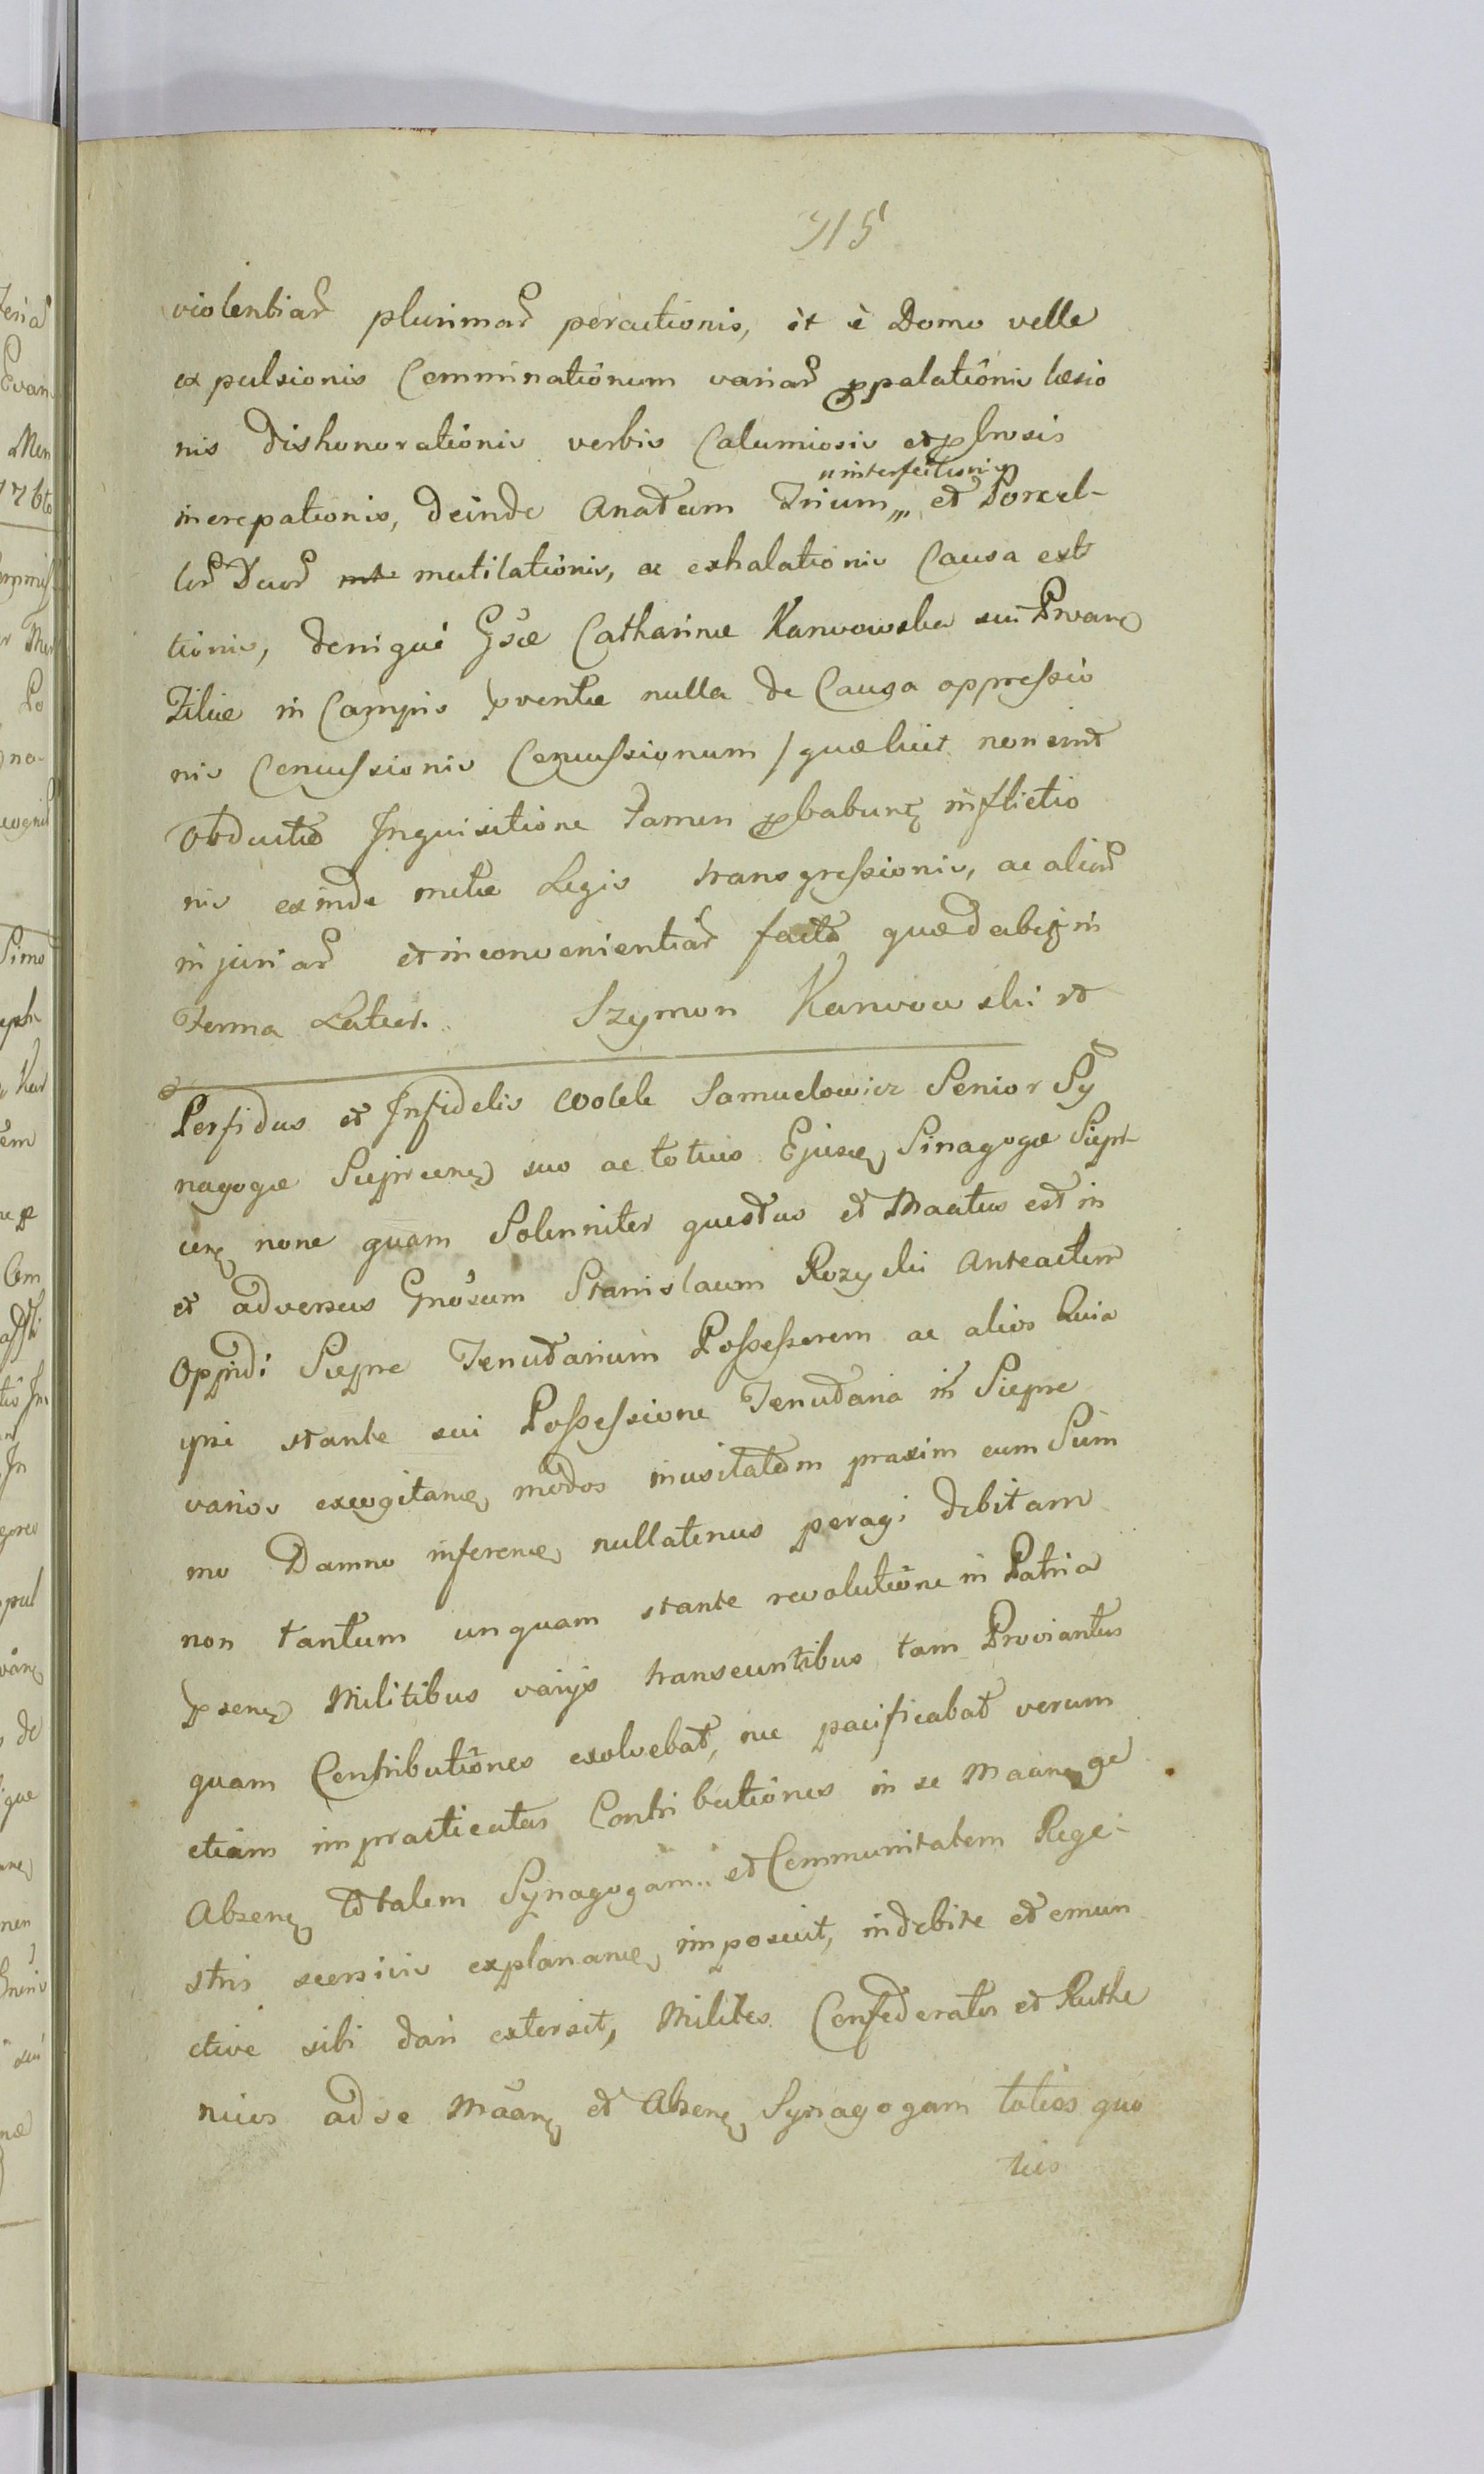 315
violentiar plurimar peractionis, et è Domo velle
expulsionis Comminationum variar ppalationis læsio
nis dishonorationis verbis Calumiosis et pbrosis
increpationis, deinde Anatum Trium „interfectionis et Porcel-
lor Duor mutilationis, ac exhalationis Causa est
tionis, denique Gsæ Catharinæ Karwowska sui Proanę
Filiæ in Campis pventæ nulla de Causa oppressio
nis Concussionis Concussionum / quæ licet non sint
Obducta Inquisitione tamen pbabunę inflictio
nis exinde metæ Legis transgressionis, ac alior
injuriar et inconvenientiar facto quæ dabię in
Forma Latiori. Szymon Karwowski et
Perfidus et Infidelis Wolek Samuelowicz Senior Sy
nagogæ Sieprcenę suo ac totius Ejusdę Sinagogæ Siepr-
cenę none quam Solenniter questus et Maatus est in
et adversus Gnosum Stanislaum Rozycki Anteactum
Oppidi Sieprc Tenutarium Possessorem ac alios Quia
ipsi stante sui Possessione Tenutaria in Sieprc
varios excogitandę modos inusitatam praxim cum Sum
mo Damno inferendę nullatenus peragi debitam
non tantum unquam stante revolutione in Patria
psenę Militibus varijs transeuntibus tam Proviantus
quam Contributiones exolvebat, nec pacificabat verum
etiam impracticatas Contributiones in se Maanę ac
Absenę totalem Synagogam et Communitatem Rege-
stris seorsivis explanandę imposuit, indebite et emun
ctive sibi dari extorsit, Milites Confederatos et Ruthe
nicos ad se Maanę et Absenę Synagogam toties quo
ties